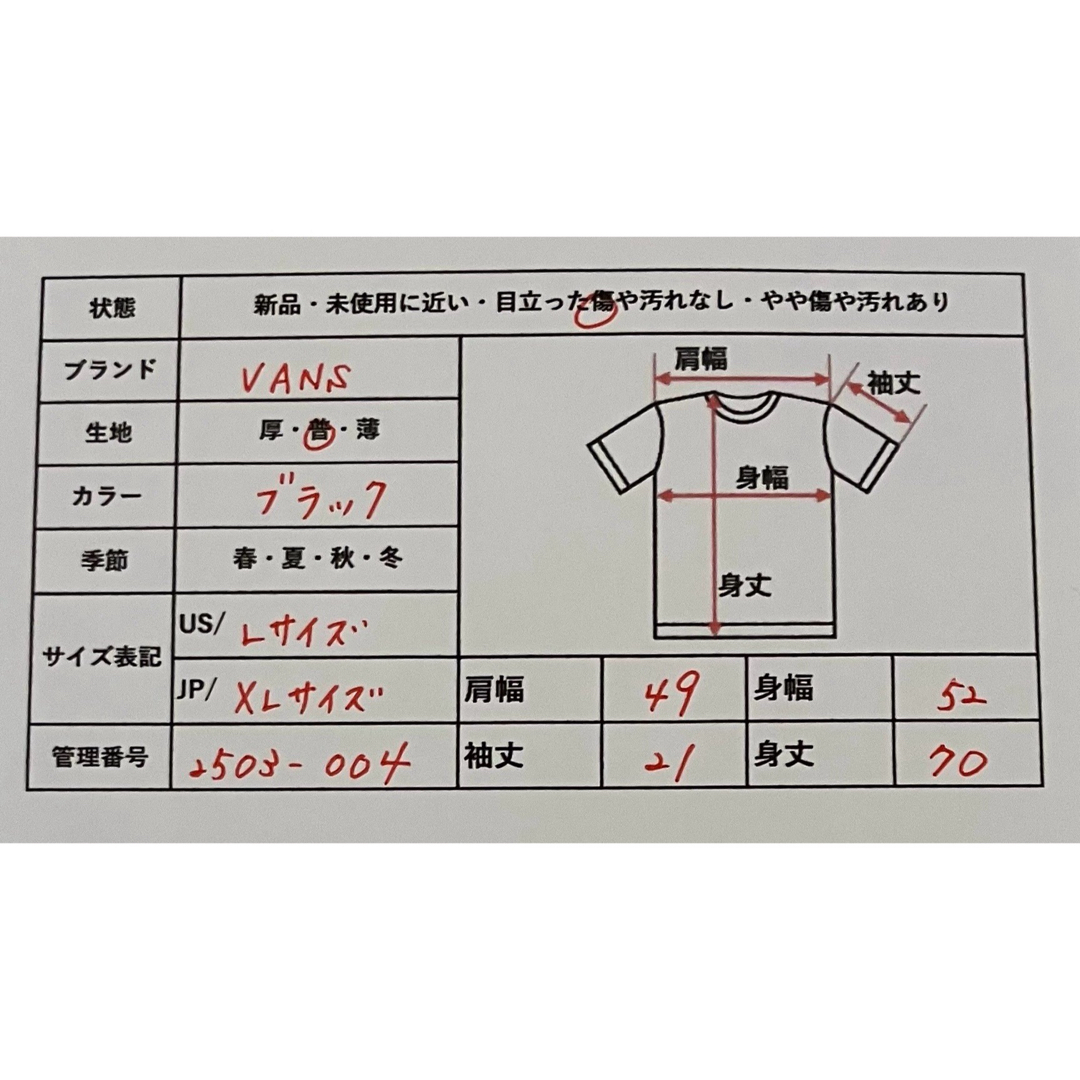 状態 新品・未使用に近い・目立った傷や汚れなし・やや傷や汚れあり
ブランド VANS
生地 厚・普・薄
カラー ブラック
季節 春・夏・秋・冬
サイズ表記
US/ Lサイズ
JP/ XLサイズ
管理番号 2503-004
肩幅
袖丈
身幅
身丈
肩幅 49 身幅 52
袖丈 21 身丈 70